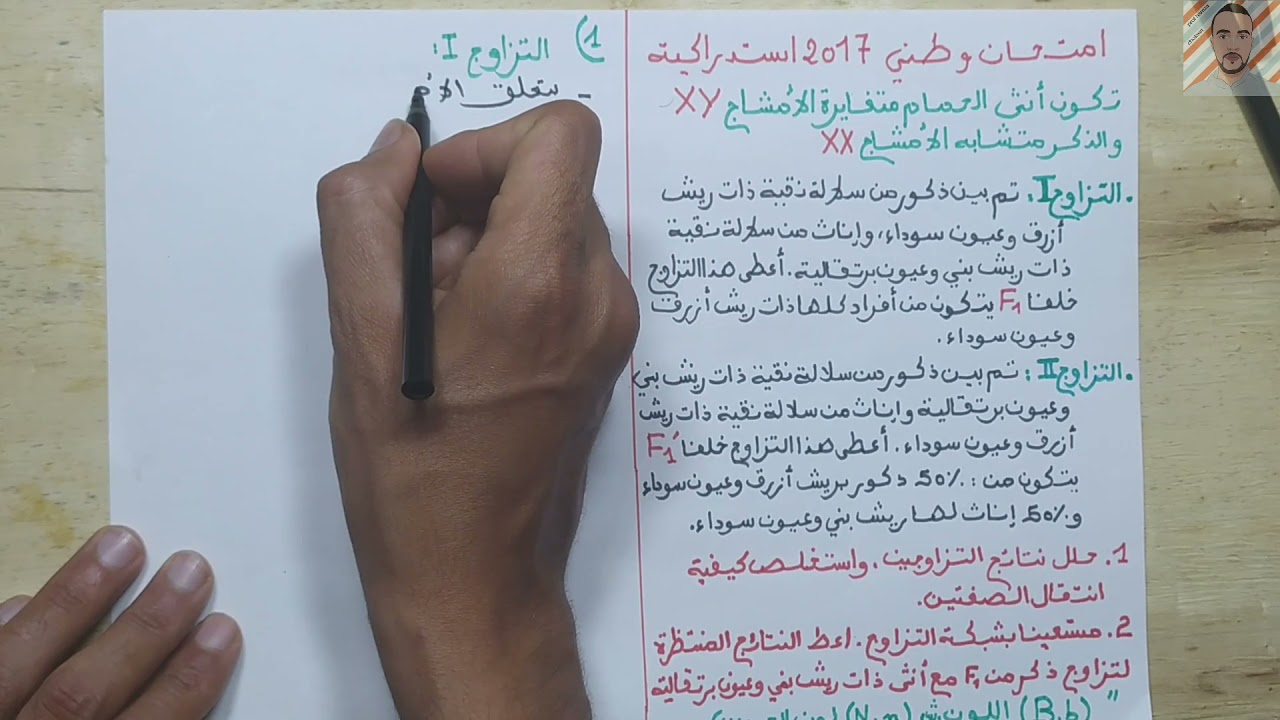 امتحان وطني 2017 استدراكية
تكون أنثى الحمام متغايرة الأمشاج XY
والذكر متشابه الأمشاج XX
• التزاوج I: تم بين ذكور من سلالة نقية ذات ريش
أزرق وعيون سوداء، وإناث من سلالة نقية
ذات ريش بني وعيون برتقالية. أعطى هذا التزاوج
خلفا F1 يتكون من أفراد كلها ذات ريش أزرق
وعيون سوداء.
• التزاوج II: تم بين ذكور من سلالة نقية ذات ريش بني
وعيون برتقالية وإناث من سلالة نقية ذات ريش
أزرق وعيون سوداء. أعطى هذا التزاوج خلفا F1'
يتكون من: 50% ذكور بريش أزرق وعيون سوداء
و50% إناث لها ريش بني وعيون سوداء.
1. حلل نتائج التزاوجين، واستخلص كيفية
انتقال الصفتين.
2. مستعينا بشبكة التزاوج. اعط النتائج المنتظرة
لتزاوج ذكر من F1 مع أنثى ذات ريش بني وعيون برتقالية
" (B,b) اللون
1) التزاوج I:
- يتعلق الأ